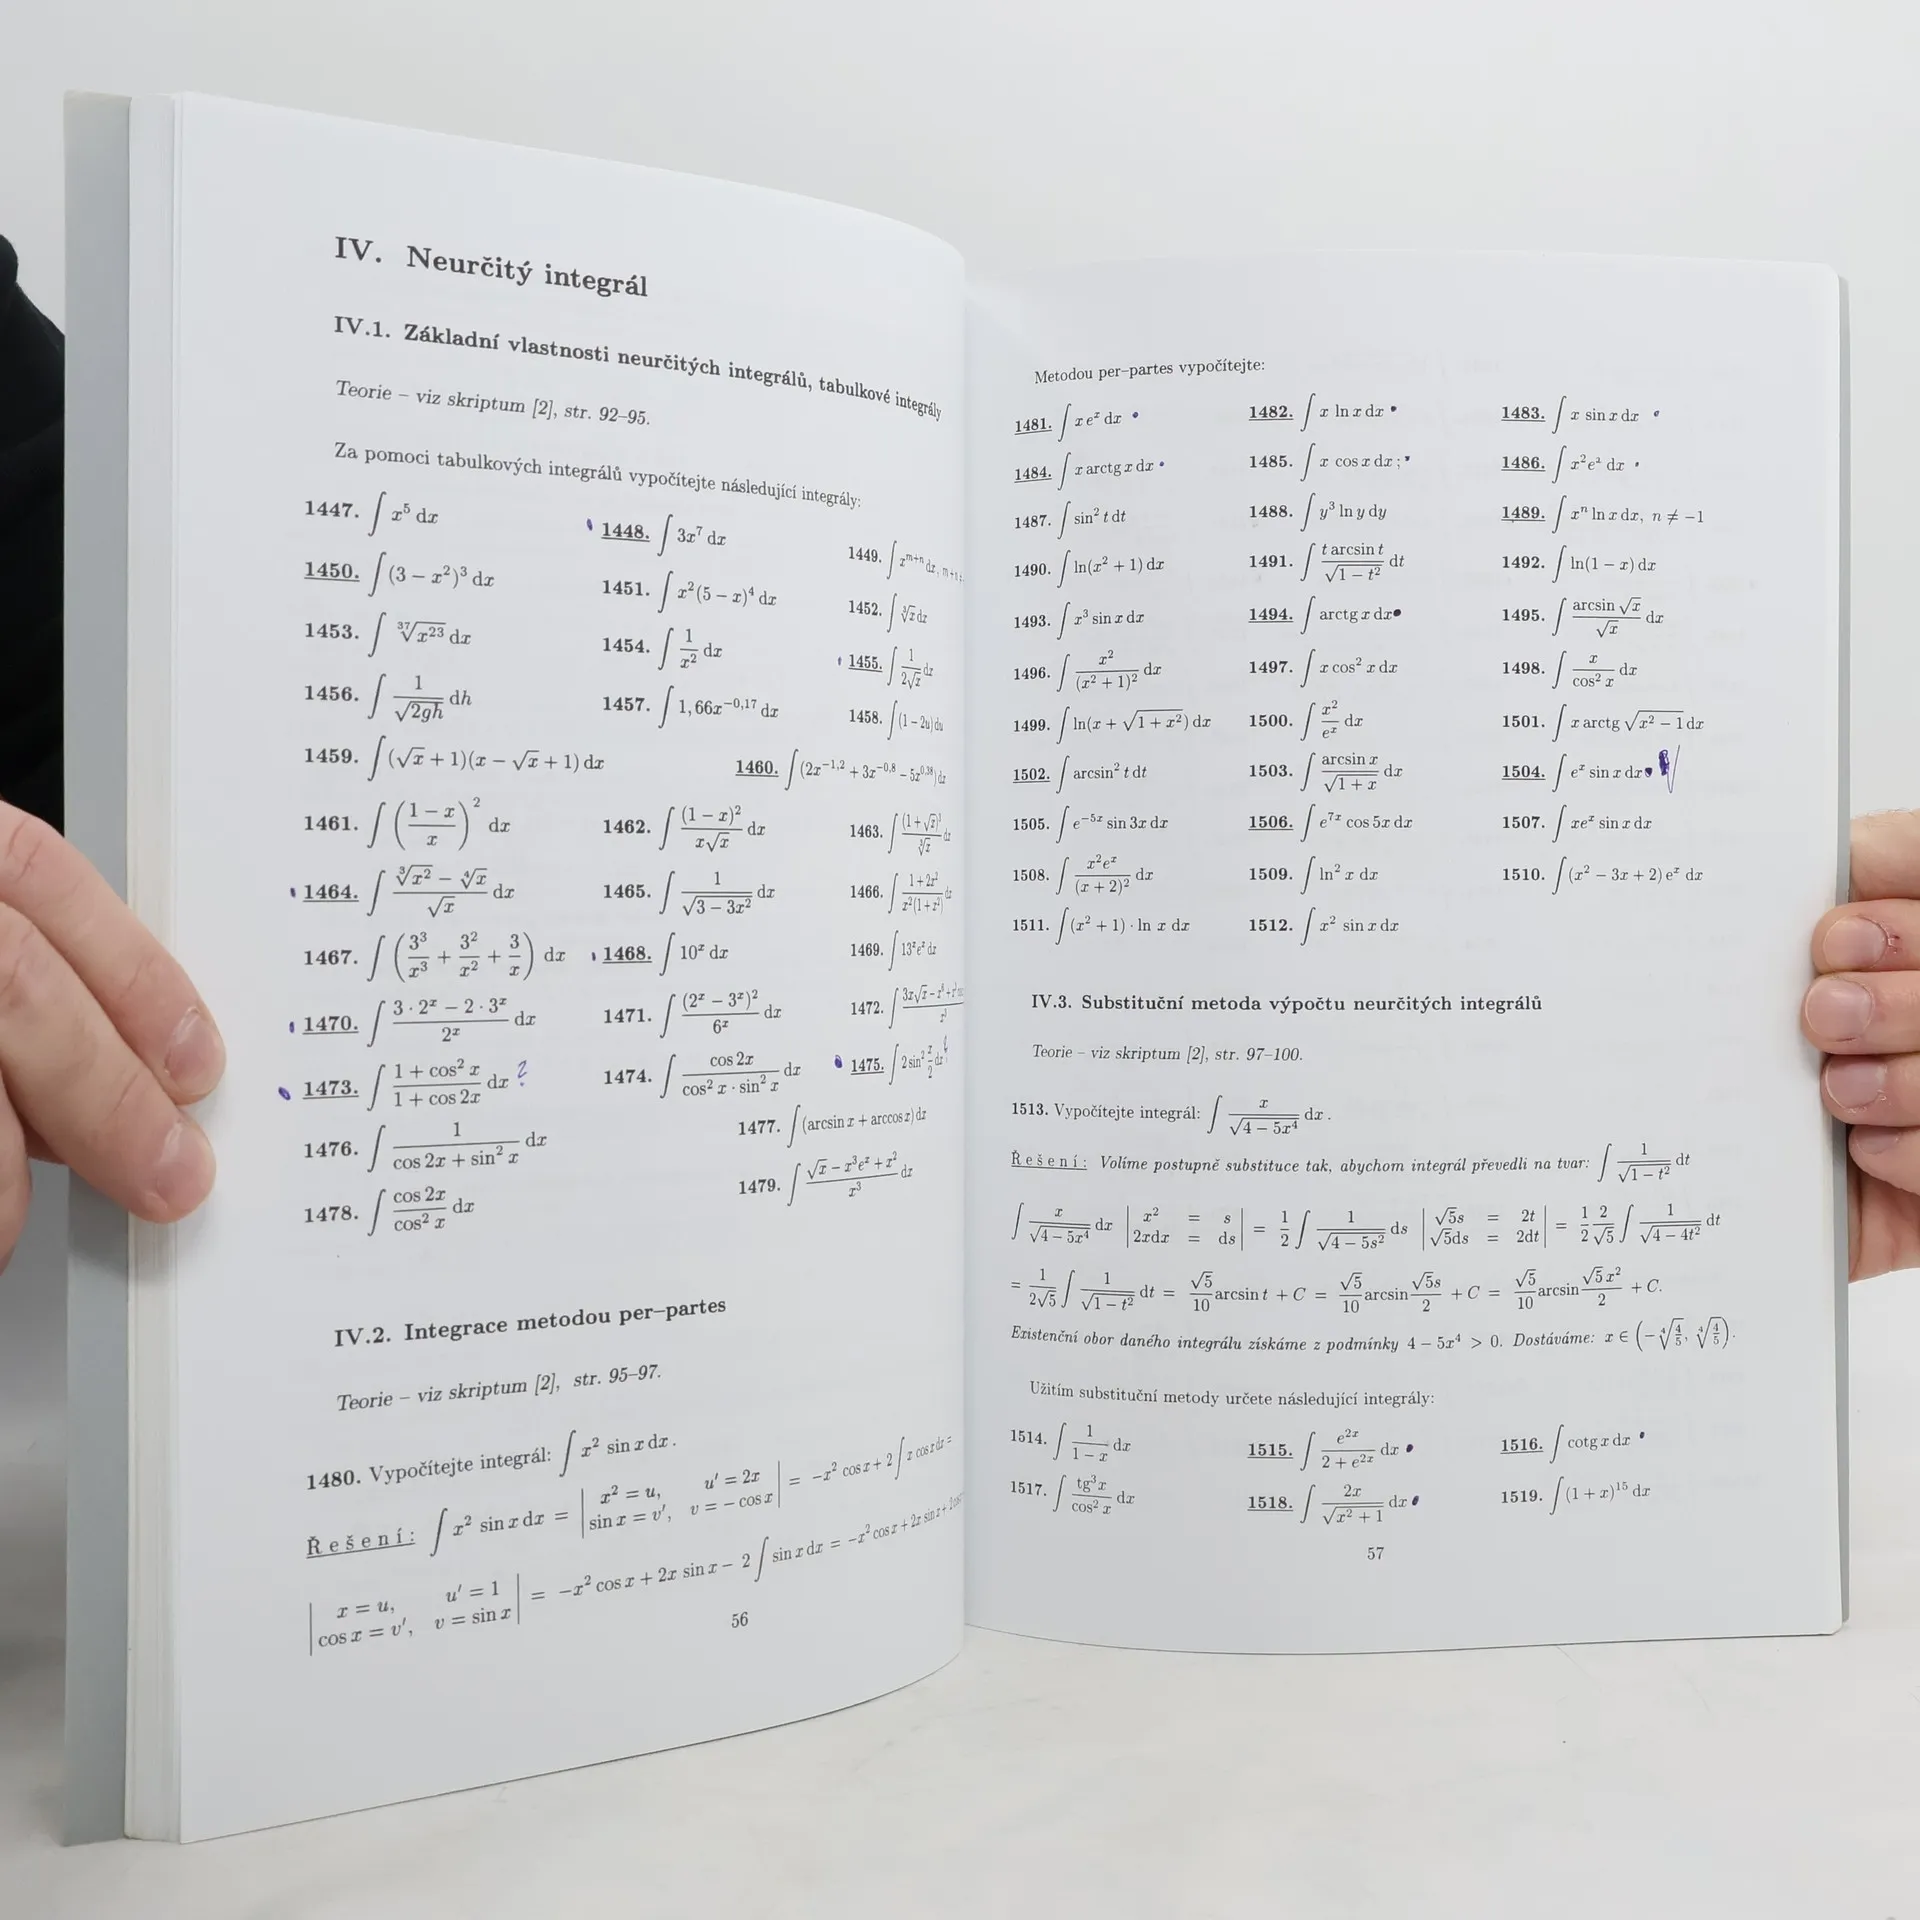 IV. Neurčitý integrál
IV.1. Základní vlastnosti neurčitých integrálů, tabulkové integrály
Teorie – viz skriptum [2], str. 92–95.
Za pomoci tabulkových integrálů vypočítejte následující integrály:
1447. ∫ x⁵ dx 1448. ∫ 3x⁷ dx 1449. ∫ x^(m+n) dx, m+n
1450. ∫ (3 − x²)³ dx 1451. ∫ x²(5 − x)⁴ dx 1452. ∫ ∛x dx
1453. ∫ ³⁷√(x²³) dx 1454. ∫ 1/x² dx 1455. ∫ 1/(2√x) dx
1456. ∫ 1/√(2gh) dh 1457. ∫ 1,66x^(−0,17) dx 1458. ∫ (1 − 2u) du
1459. ∫ (√x + 1)(x − √x + 1) dx 1460. ∫ (2x^(−1,2) + 3x^(−0,8) − 5x^(0,38)) dx
1461. ∫ ((1 − x)/x)² dx 1462. ∫ (1 − x)²/(x√x) dx 1463. ∫ (1 + √x)³/∛x dx
1464. ∫ (∛(x²) − ∜x)/√x dx 1465. ∫ 1/√(3 − 3x²) dx 1466. ∫ (1 + 2x²)/(x²(1 + x²)) dx
1467. ∫ (3³/x³ + 3²/x² + 3/x) dx 1468. ∫ 10ˣ dx 1469. ∫ 13ˣeˣ dx
1470. ∫ (3 · 2ˣ − 2 · 3ˣ)/2ˣ dx 1471. ∫ (2ˣ − 3ˣ)²/6ˣ dx 1472.
1473. ∫ (1 + cos² x)/(1 + cos 2x) dx ? 1474. ∫ cos 2x/(cos² x · sin² x) dx 1475. ∫ 2 sin² x/2 dx
1476. ∫ 1/(cos 2x + sin² x) dx 1477. ∫ (arcsin x + arccos x) dx
1478. ∫ cos 2x/cos² x dx 1479. ∫ (√x − x³eˣ + x²)/x³ dx
IV.2. Integrace metodou per–partes
Teorie – viz skriptum [2], str. 95–97.
1480. Vypočítejte integrál: ∫ x² sin x dx .
Řešení: ∫ x² sin x dx = | x² = u, u′ = 2x; sin x = v′, v = − cos x | = −x² cos x + 2 ∫ x cos x dx =
| x = u, u′ = 1; cos x = v′, v = sin x | = −x² cos x + 2x sin x − 2 ∫ sin x dx = −x² cos x + 2x sin x +
56
Metodou per–partes vypočítejte:
1481. ∫ x eˣ dx 1482. ∫ x ln x dx 1483. ∫ x sin x dx
1484. ∫ x arctg x dx 1485. ∫ x cos x dx ; 1486. ∫ x²eˣ dx
1487. ∫ sin² t dt 1488. ∫ y³ ln y dy 1489. ∫ xⁿ ln x dx, n ≠ −1
1490. ∫ ln(x² + 1) dx 1491. ∫ t arcsin t/√(1 − t²) dt 1492. ∫ ln(1 − x) dx
1493. ∫ x³ sin x dx 1494. ∫ arctg x dx 1495. ∫ arcsin √x/√x dx
1496. ∫ x²/(x² + 1)² dx 1497. ∫ x cos² x dx 1498. ∫ x/cos² x dx
1499. ∫ ln(x + √(1 + x²)) dx 1500. ∫ x²/eˣ dx 1501. ∫ x arctg √(x² − 1) dx
1502. ∫ arcsin² t dt 1503. ∫ arcsin x/√(1 + x) dx 1504. ∫ eˣ sin x dx
1505. ∫ e^(−5x) sin 3x dx 1506. ∫ e^(7x) cos 5x dx 1507. ∫ xeˣ sin x dx
1508. ∫ x²eˣ/(x + 2)² dx 1509. ∫ ln² x dx 1510. ∫ (x² − 3x + 2) eˣ dx
1511. ∫ (x² + 1) · ln x dx 1512. ∫ x² sin x dx
IV.3. Substituční metoda výpočtu neurčitých integrálů
Teorie – viz skriptum [2], str. 97–100.
1513. Vypočítejte integrál: ∫ x/√(4 − 5x⁴) dx .
Řešení: Volíme postupně substituce tak, abychom integrál převedli na tvar: ∫ 1/√(1 − t²) dt
∫ x/√(4 − 5x⁴) dx | x² = s; 2xdx = ds | = 1/2 ∫ 1/√(4 − 5s²) ds | √5s = 2t; √5ds = 2dt | = 1/2 2/√5 ∫ 1/√(4 − 4t²) dt
= 1/(2√5) ∫ 1/√(1 − t²) dt = √5/10 arcsin t + C = √5/10 arcsin √5s/2 + C = √5/10 arcsin √5 x²/2 + C.
Existenční obor daného integrálu získáme z podmínky 4 − 5x⁴ > 0. Dostáváme: x ∈ (−∜(4/5), ∜(4/5)).
Užitím substituční metody určete následující integrály:
1514. ∫ 1/(1 − x) dx 1515. ∫ e^(2x)/(2 + e^(2x)) dx 1516. ∫ cotg x dx
1517. ∫ tg³x/cos² x dx 1518. ∫ 2x/√(x² + 1) dx 1519. ∫ (1 + x)¹⁵ dx
57